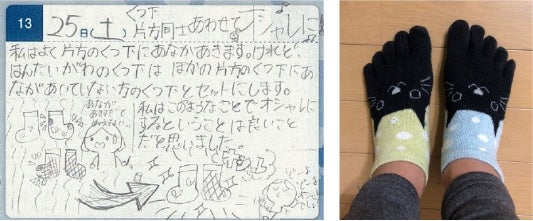 13
25日(土) くつ下片方同士あわせてオシャレに
私はよく片方のくつ下にあながあきます。けれど、
はんたいがわのくつ下は ほかの片方のくつ下にあ
ながあいていない方のくつ下とセットにします。
私はこのようなことでオシャレに
するということは良いこと
だと思いました。
あなが